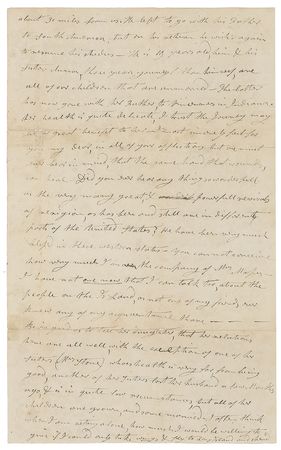 about 30 miles from us. He left to go with his Father
to South America, but on his return he wishes again
to resume his studies — He is 18 years old, him & his
sister Susan, three years younger than himself, are
all of our children that are unmarried — The latter
has now gone with her Father to in Indiana
her health is quite delicate, I trust the Journey may
be a great benefit to her — I most sincerely feel for
you my dear, in all of your afflictions but we must
ever bear in mind, that the same hand that wounds,
can heal. Did you ever hear any thing so wonderful
as the very many great & powerfull revivals
of religion, as has been and still are in different
parts of the United States? We have very much
of it in these western states — You cannot conceive
how very much I miss the company of Mrs
I have not one now that I can talk to about the
people on the Island, or not one of my friends ever
knew any of my acquaintance there —
Be so good as to tell her daughter, that her relations
here are all well, with the exception of one of her
sisters (Mrs Stone) whose health is very far from being
good, another of her sisters lost her husband a few months
ago, & is in quite low circumstances, but all of her
children are grown, and some married. I often think
when I am alone, how much I would be willing to
give if I could only